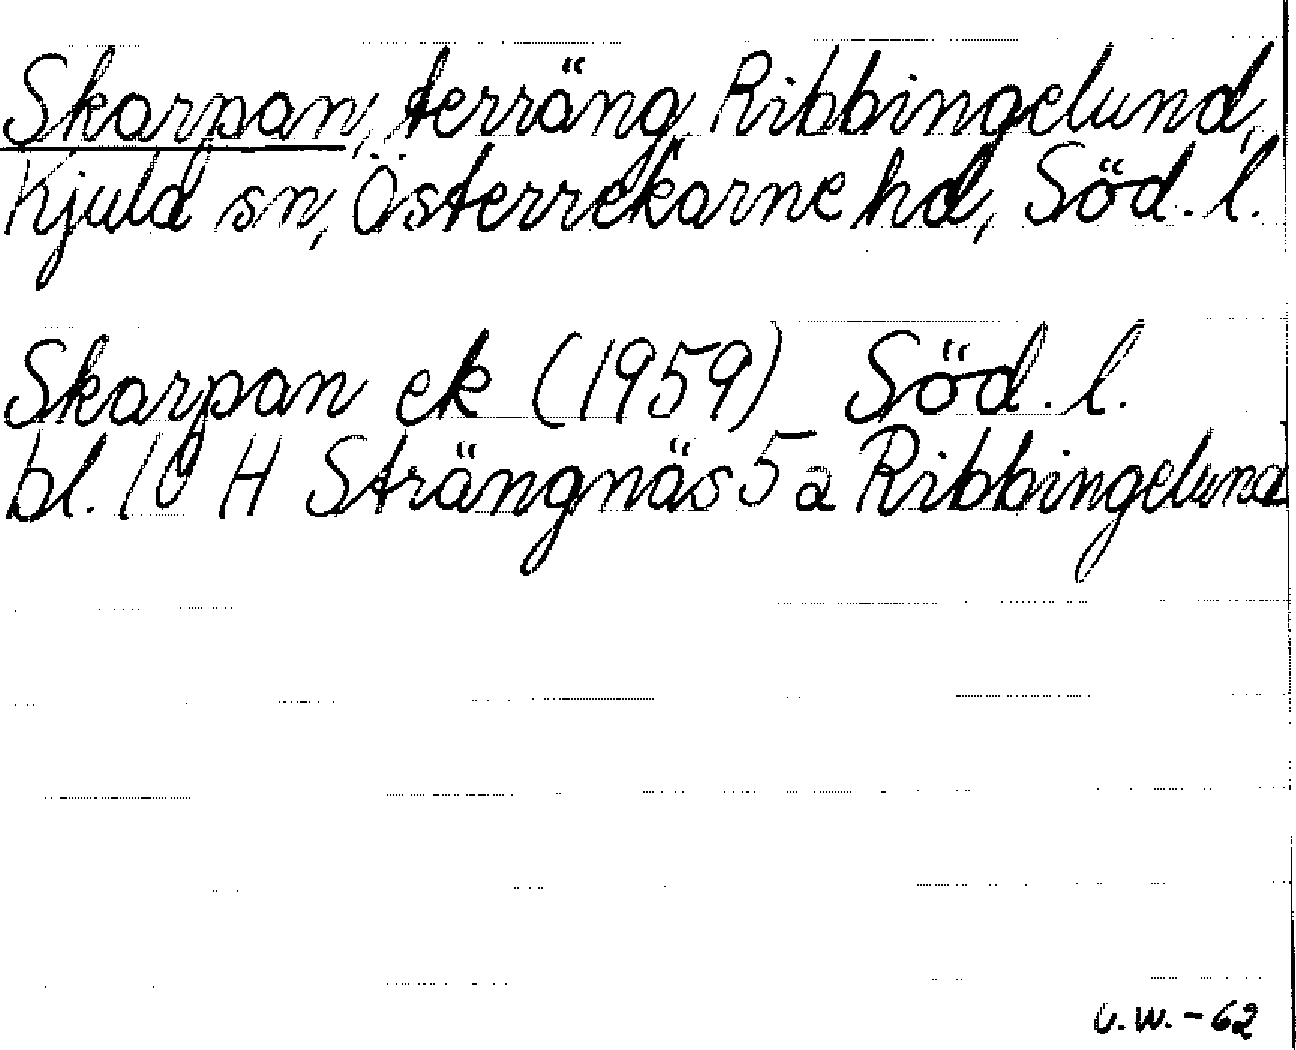 Skarpan, terräng, Ribbingelund,
Kjula sn, Österrekarne hd, Söd. l.
Skarpan ek (1959) Söd. l.
bl. 10 H Strängnäs 5 a Ribbingelund
U.W.-62